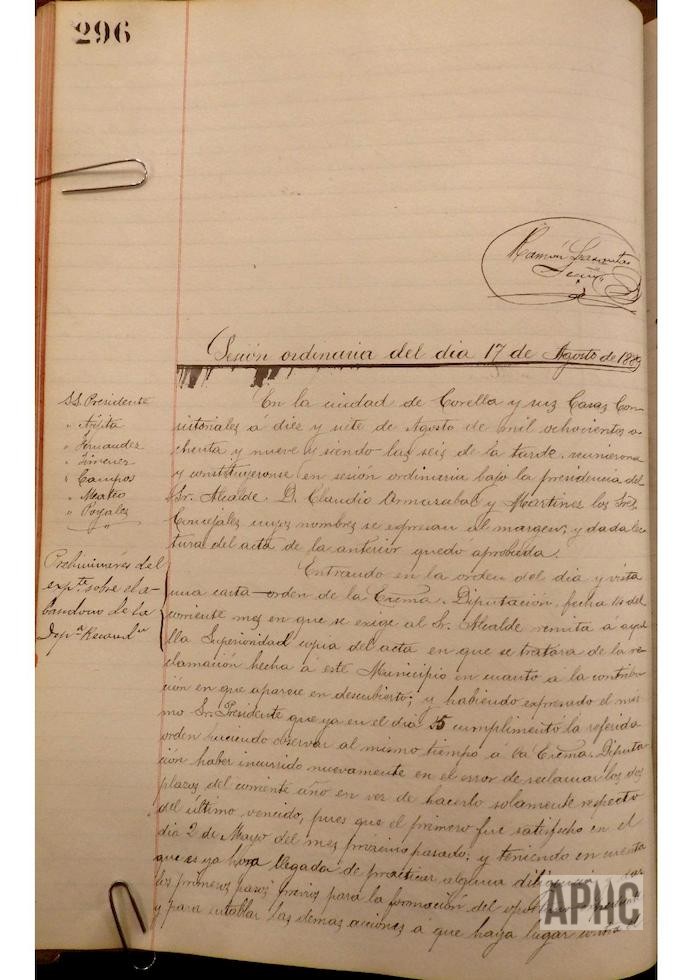 296
Ramón
Sesión ordinaria del dia 17 de Agosto de 1889
S.S. Presidente
" Arjita
" Fernandez
" Jimenez
" Campos
" Mateo
" Poyales
"
En la ciudad de Corella y sus Casas Con-
sistoriales a diez y siete de Agosto de mil ochocientos o-
chenta y nueve y siendo las seis de la tarde, reunieronse
y constituyeronse en sesión ordinaria bajo la presidencia del
Sr. Alcalde D. Claudio Armasabal y Martinez los Sres
Concejales cuyos nombres se expresan al margen, y dada lec-
tura del acta de la anterior quedó aprobada.
Preliminares del
expte. sobre el a-
bandono de la
Depna Recaudn
Entrando en la orden del dia y vista
una carta-orden de la Excma. Diputación, fecha 14 del
corriente mes en que se exige al Sr. Alcalde remita á aque-
lla Superioridad copia del acta en que se tratara de la re-
clamación hecha á este Municipio en cuanto a la contribu-
ción en que aparece en descubierto; y habiendo expresado el mis-
mo Sr. Presidente que ya en el dia 15 cumplimentó la referida
orden haciendo observar al mismo tiempo á la Excma. Diputa-
ción haber incurrido nuevamente en el error de reclamar los dos
plazos del corriente año en vez de hacerlo solamente respecto
del último vencido, pues que el primero fué satisfecho en el
dia 2 de Mayo del mes próximo pasado; y teniendo en cuenta
que es ya hora llegada de practicar alguna diligencia
los primeros pasos previos para la formación del
y para entablar las demas acciones á que haya lugar contra
APHC